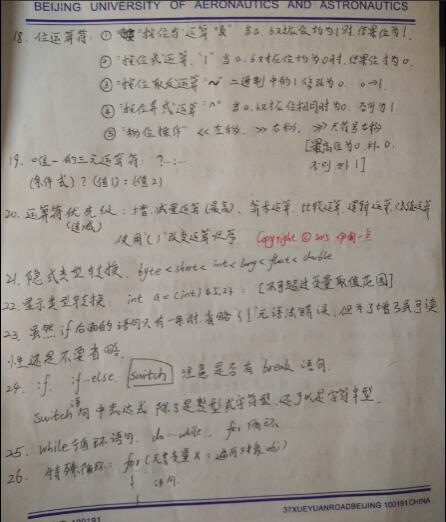 BEIJING UNIVERSITY OF AERONAUTICS AND ASTRONAUTICS
18. 位运算符: ① "按位与"运算"&" 当a,b对应位均为1时,结果位为1.
② "按位或运算"."|" 当a,b对应位均为0时,结果位才为0.
③ "按位取反运算"~" 二进制中的1修改为0, 0→1.
④ "按位异或"运算."^" 当a,b对应位相同时为0. 否则为1
⑤ "移位操作" << 左移, >> 右移, >>> 无符号右移
[最高位为0,补0.
否则补1]
19. 唯一的三元运算符: ?—:—
(条件式) ? (值1) : (值2)
20. 运算符优先级: 增,减量运算(最高), 算术运算, 比较运算, 逻辑运算,
(递减)
使用"()"改变运算顺序 Copyright © 2015 伊甸一点
21. 隐式类型转换. byte < short < int < long < float < double
22. 显示类型转换: int a = (int) 45.23; [不可超过变量取值范围]
23. 虽然if后面的语句只有一条时,省略{}无语法错误,但为了增强可读
性还是不要省略.
24. if. if-else. switch 注意是否有break语句.
switch语句中表达式除了是整型或字符型,还可以是字符串型.
25. while循环语句. do—while. for循环
26. 特殊循环: for(元素变量x: 遍历对象obj)
{ 语句.
100191
37XUEYUANROADBEIJING 100191CHINA